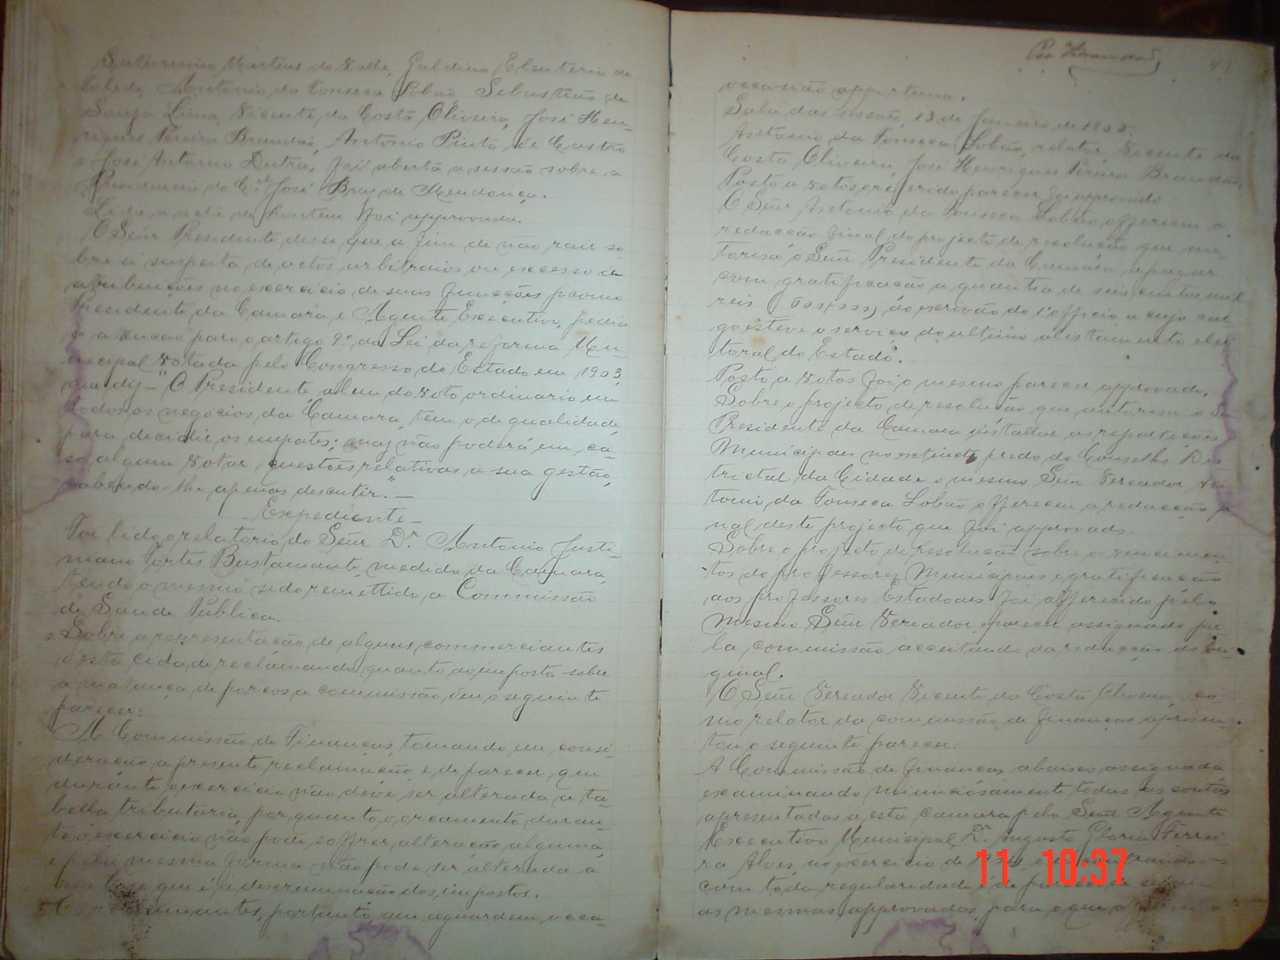 Saturnino Martins do Valle, Galdino Eleuterio de
Toledo Antonio da Fonseca Lobão Sebastião de
Souza Lima, Vicente da Costa Oliveira, José Hen-
riques Pereira Brandão, Antonio Pinto de Castro
e José Antonio Dutra, foi aberta a sessão sobre a
Presidencia do José Braz de Mendonça.
Lida a acta de hontem foi approvada.
O Señr Presidente disse que a fim de não cair so-
bre si suspeita de actos arbitrarios ou excesso de
atribuições no exercicio de suas funcções como
Presidente da Camara e Agente Executivo, pedia
a attenção para o artigo 9º da Lei da reforma Mu-
nicipal votada pelo Congresso do Estado em 1903
que diz — "O Presidente alem do voto ordinario em
todos os negocios da Camara, tem o de qualidade
para decidir os empates; mas não poderá em ca-
so algum votar questões relativas a sua gestão,
cabendo-lhe apenas descutir." —
— Expediente —
Foi lido o relatorio do Señr Dr. Antonio Justi-
niano Fortes Bustamante medico da Camara,
tendo o mesmo sido remettido a Commissão
de Saude Publica.
Sobre a representação de alguns commerciantes
d'esta cidade reclamando quanto ao imposto sobre
a matança de porcos a commissão deu o seguinte
parecer:
A Commissão de Finanças, tomando em consi-
deração a presente reclamação, e de parecer que
durante o exercicio não deve ser alterada a ta-
bella tributaria, por quanto, o orçamento duran-
te o exercicio não pode soffrer alteração alguma
e pela mesma forma não pode ser alterada a
que é a descriminação dos impostos.
Os reclamantes, portanto, que aguardem occa-
occasião opportuna.
Sala das sessão, 13 de Janeiro de
Antonio da Fonseca Lobão, relator, Vicente da
Costa Oliveira, José Henriques Pereira Brandão,
Posto a votos o referido parecer foi approvado.
O Señr Antonio da Fonseca Lobão offereceu a
redacção final do projecto de resolução que au-
torisa o Señr Presidente da Camara a pagar
com gratificação a quantia de seiscentos mil
reis ao escrivão do 1º officio a cujo car-
go esteve o serviço do ultimo alistamento elei-
toral do Estado.
Posto a votos foi o mesmo parecer approvado.
Sobre o projecto de resolução que autorisa o Sr
Presidente da Camara installar as repartições
Municipaes no extincto predio do Conselho Dis-
trictal da Cidade o mesmo Señr Vereador An-
tonio da Fonseca Lobão offereceu a redacção fi-
nal deste projecto que foi approvado.
Sobre o projecto de resolução sobre os vencimen-
tos do professores Municipaes e gratificação
aos professores Estadoaes foi offerecido pelo
mesmo Señr Vereador parecer assignado pe-
la commissão acceitando da redacção do ori-
ginal.
O Señr Vereador Vicente da Costa Oliveira, co-
mo relator da commissão de finanças apresen-
tou o seguinte parecer:
A Commissão de finanças abaixo assignada
examinando minunciosamente todas as contas
apresentadas a esta camara pelo Señr Agente
Executivo Municipal Dr. Augusto Gloria Ferrei-
ra Alves no exercicio de
com toda regularidade é de parecer
as mesmas approvadas, para o que
11 10:37